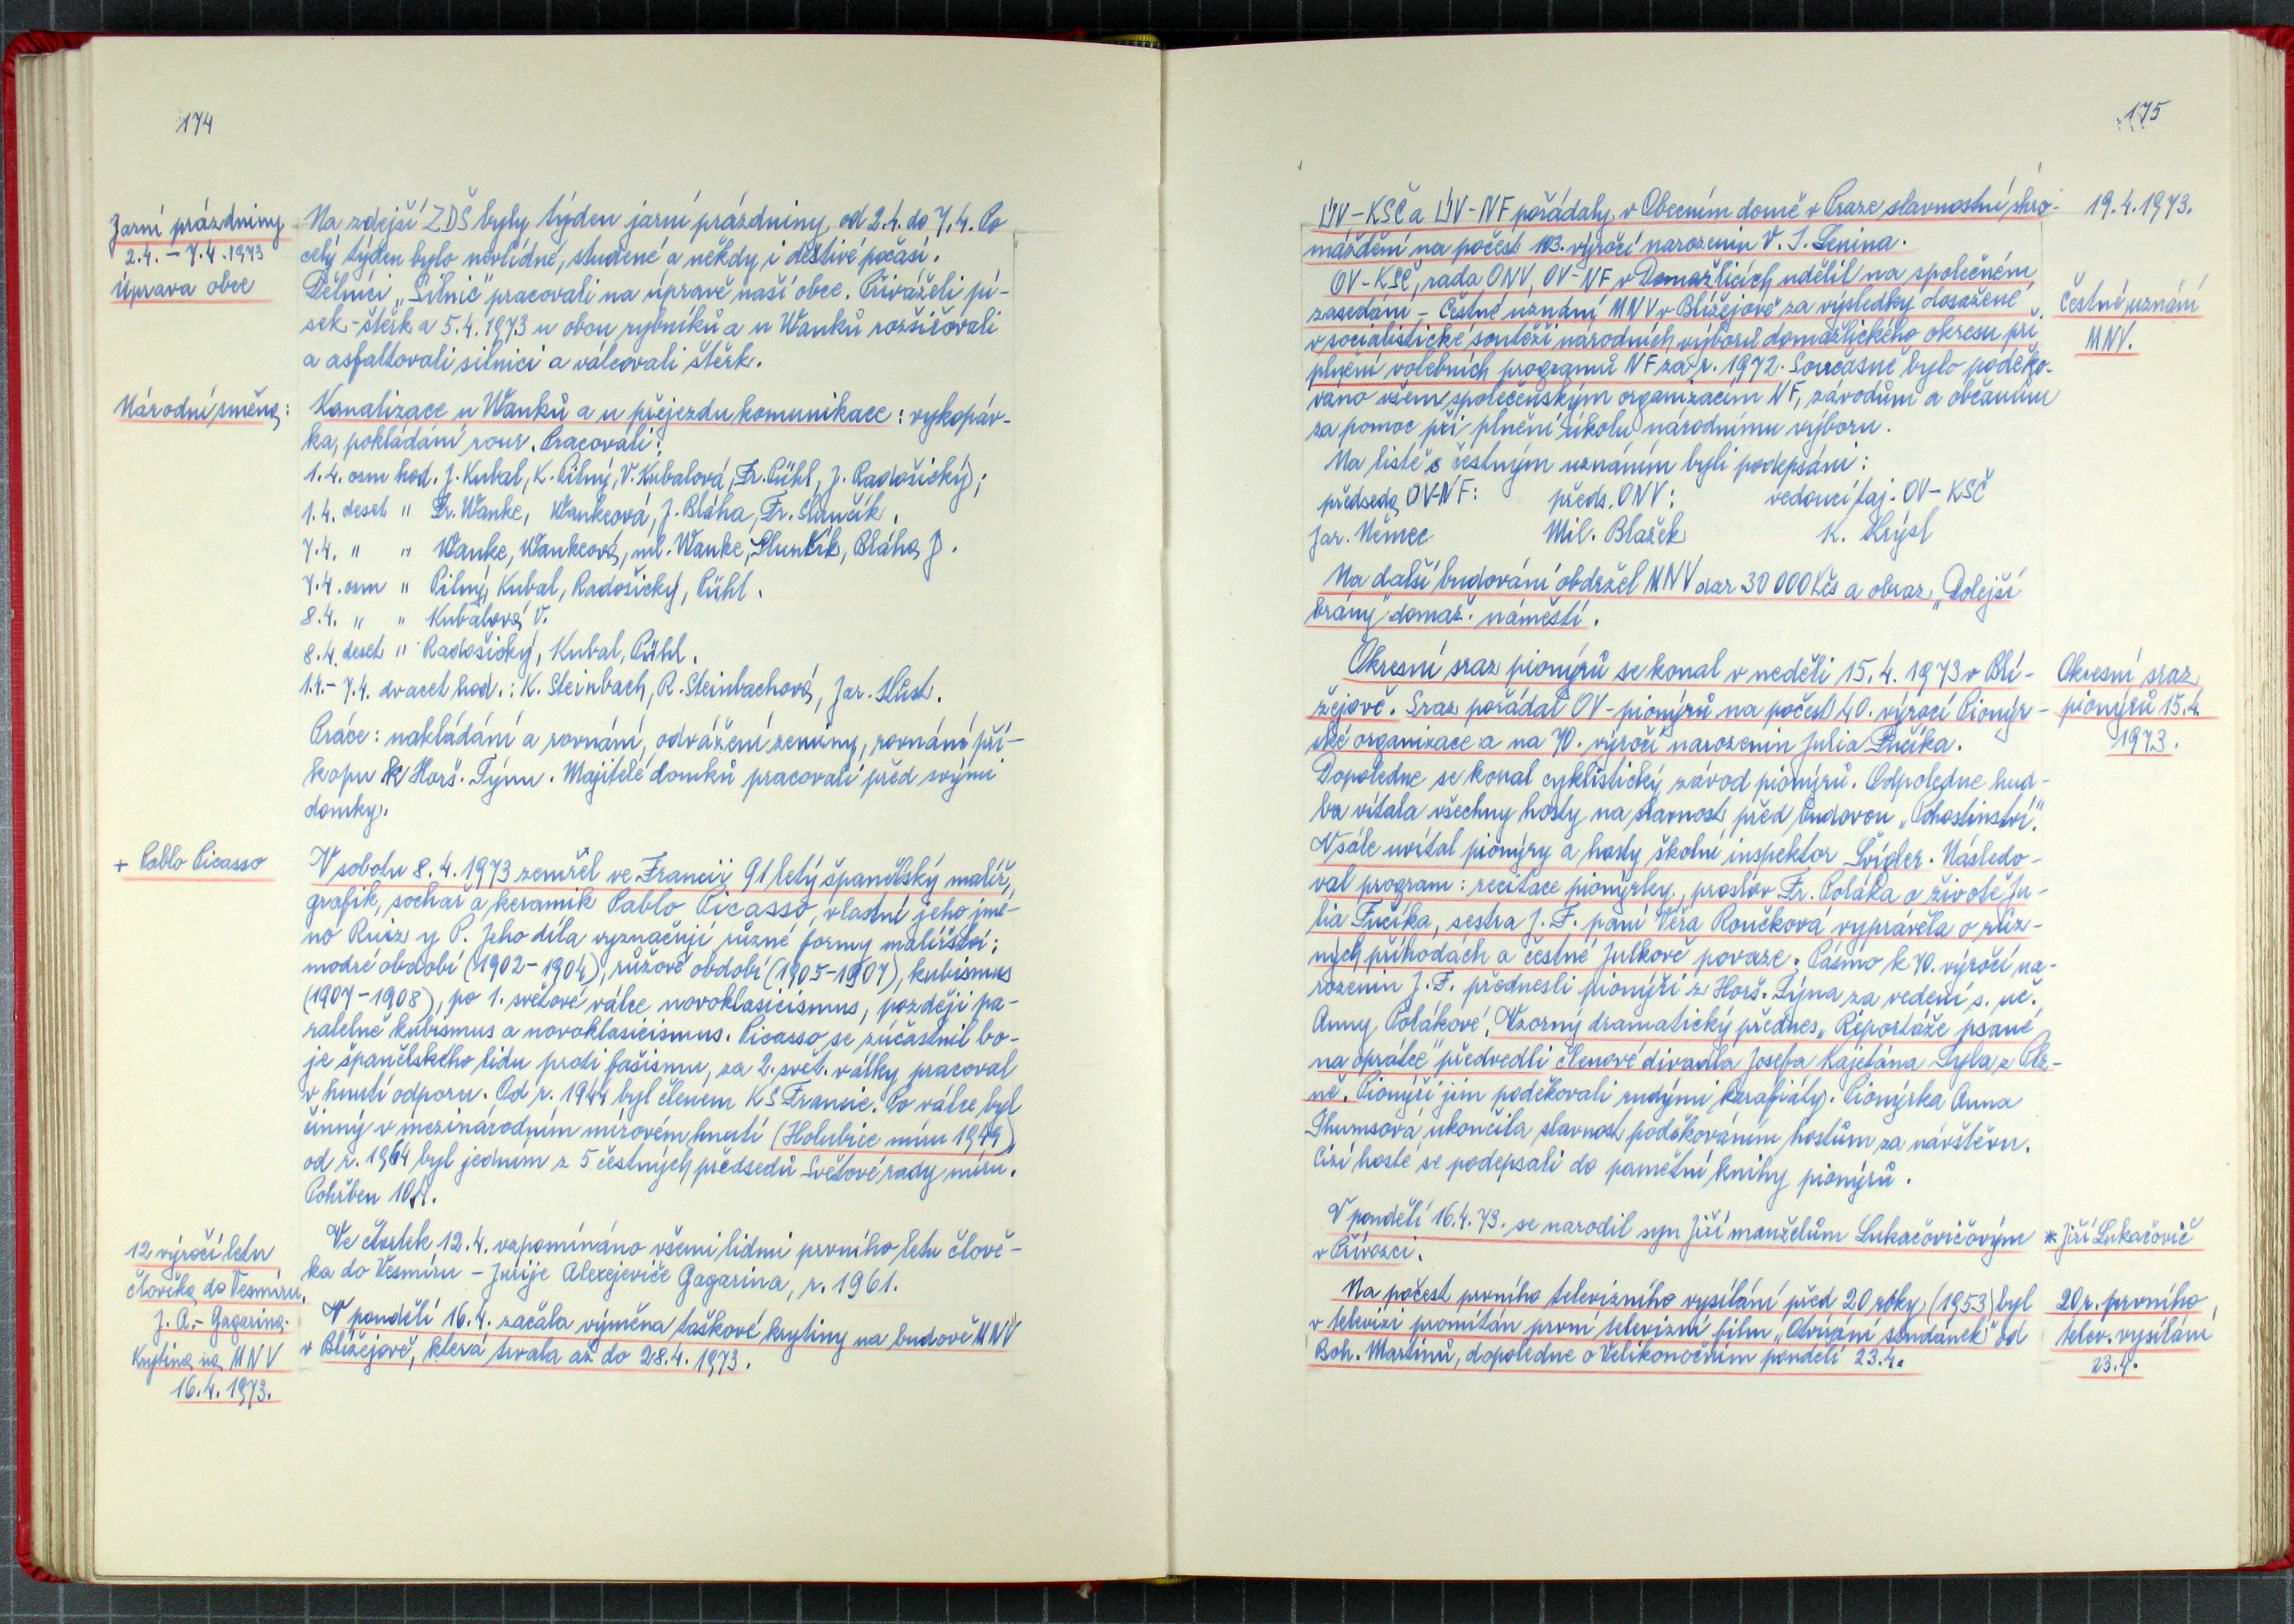 174
Jarní prázdniny
2.4. – 7.4.1973
Úprava obce
Na zdejší ZDŠ byly týden jarní prázdniny, od 2.4. do 7.4. Po
celý týden bylo nevlídné, studené a někdy i deštivé počasí.
Dělníci „Silnic" pracovali na úpravě naší obce. Přiváželi pí-
sek - štěrk a 5.4.1973 u obou rybníků a u Wanků rozšiřovali
a asfaltovali silnici a válcovali štěrk.
Národní směna:
Kanalizace u Wanků a u přejezdu komunikace: vykopáv-
ka, pokládání rour. Pracovali:
1.4. osm hod. J. Kubal, K. Pilný, V. Kubalová, Fr. Pühl, J. Radošický;
1.4. deset " Fr. Wanke, Wankeová, J. Bláha, Fr. Slunčík.
7.4. " " Wanke, Wankeová, ml. Wanke, Slunčík, Bláha J.
7.4. osm " Pilný, Kubal, Radošický, Pühl.
8.4. " " Kubalová V.
8.4. deset " Radošický, Kubal, Pühl.
1.4.– 7.4. dvacet hod.: K. Steinbach, R. Steinbachová, Jar. Šlůst.
Práce: nakládání a rovnání, odvážení zeminy, rovnání pří-
kopu k Horš. Týnu. Majitelé domků pracovali před svými
domky.
+ Pablo Picasso
V sobotu 8.4.1973 zemřel ve Francii 91 letý španělský malíř,
grafik, sochař a keramik Pablo Picasso, vlastní jeho jmé-
no Ruiz y P. Jeho díla vyznačují různé formy malířství:
modré období (1902-1904), růžové období (1905-1907), kubismus
(1907-1908), po 1. světové válce novoklasicismus, později pa-
ralelně kubismus a novoklasicismus. Picasso se zúčastnil bo-
je španělského lidu proti fašismu, za 2. svět. války pracoval
v hnutí odporu. Od r. 1944 byl členem KS Francie. Po válce byl
činný v mezinárodním mírovém hnutí (Holubice míru 1949),
od r. 1964 byl jedním z 5 čestných předsedů Světové rady míru.
Pohřben 10.4.
12 výročí letu
člověka do Vesmíru,
J. A. - Gagarina.
Ve čtvrtek 12.4. vzpomínáno všemi lidmi prvního letu člově-
ka do Vesmíru – Jurije Alexejeviče Gagarina, r. 1961.
Krytina na MNV
16.4.1973.
V pondělí 16.4. začala výměna taškové krytiny na budově MNV
v Blížejově, která trvala až do 28.4.1973.
175
ÚV-KSČ a ÚV-NF pořádaly v Obecním domě v Praze slavnostní shro-
máždění na počest 103. výročí narozenin V. I. Lenina.
19.4.1973.
OV-KSČ, rada ONV, OV-NF v Domažlicích udělil na společném
zasedání – Čestné uznání MNV v Blížejově za výsledky dosažené
v socialistické soutěži národních výborů domažlického okresu při
plnění volebních programů NF za r. 1972. Současně bylo poděko-
váno všem společenským organizacím NF, závodům a občanům
za pomoc při plnění úkolu národnímu výboru.
Čestné uznání
MNV.
Na listě s čestným uznáním byli podepsáni:
předseda OV-NF: předs. ONV: vedoucí taj. OV-KSČ
Jar. Němec Mil. Blažek K. Krýsl
Na další budování obdržel MNV dar 30 000 Kčs a obraz „Dolejší
brány" domaž. náměstí.
Okresní sraz pionýrů se konal v neděli 15.4.1973 v Blí-
žejově. Sraz pořádal OV-pionýrů na počest 40. výročí Pionýr-
ské organizace a na 70. výročí narozenin Julia Fučíka.
Okresní sraz
pionýrů 15.4.
1973.
Dopoledne se konal cyklistický závod pionýrů. Odpoledne hud-
ba vítala všechny hosty na slavnost před budovou „Pohostinství".
V sále uvítal pionýry a hosty školní inspektor Švígler. Následo-
val program: recitace pionýrky, proslov Fr. Poláka o životě Ju-
lia Fučíka, sestra J. F. paní Věra Roučková vyprávěla o růz-
ných příhodách a čestné Julkově povaze. Pásmo k 70. výročí na-
rozenin J. F. přednesli pionýři z Horš. Týna za vedení s. uč.
Anny Polákové. Vzorný dramatický přednes „Reportáže psané
na oprátce" předvedli členové divadla Josefa Kajetána Tyla z Plz-
ně. Pionýři jim poděkovali rudými karafiáty. Pionýrka Anna
Thumsová ukončila slavnost poděkováním hostům za návštěvu.
Cizí hosté se podepsali do pamětní knihy pionýrů.
V pondělí 16.4.73. se narodil syn Jiří manželům Lukačovičovým
v Přívozci.
* Jiří Lukačovič
Na počest prvního televizního vysílání před 20 roky (1953) byl
v televizi promítán první televizní film „Otvírání studánek" od
Boh. Martinů, dopoledne o Velikonočním pondělí 23.4.
20 r. prvního
telev. vysílání
23.4.